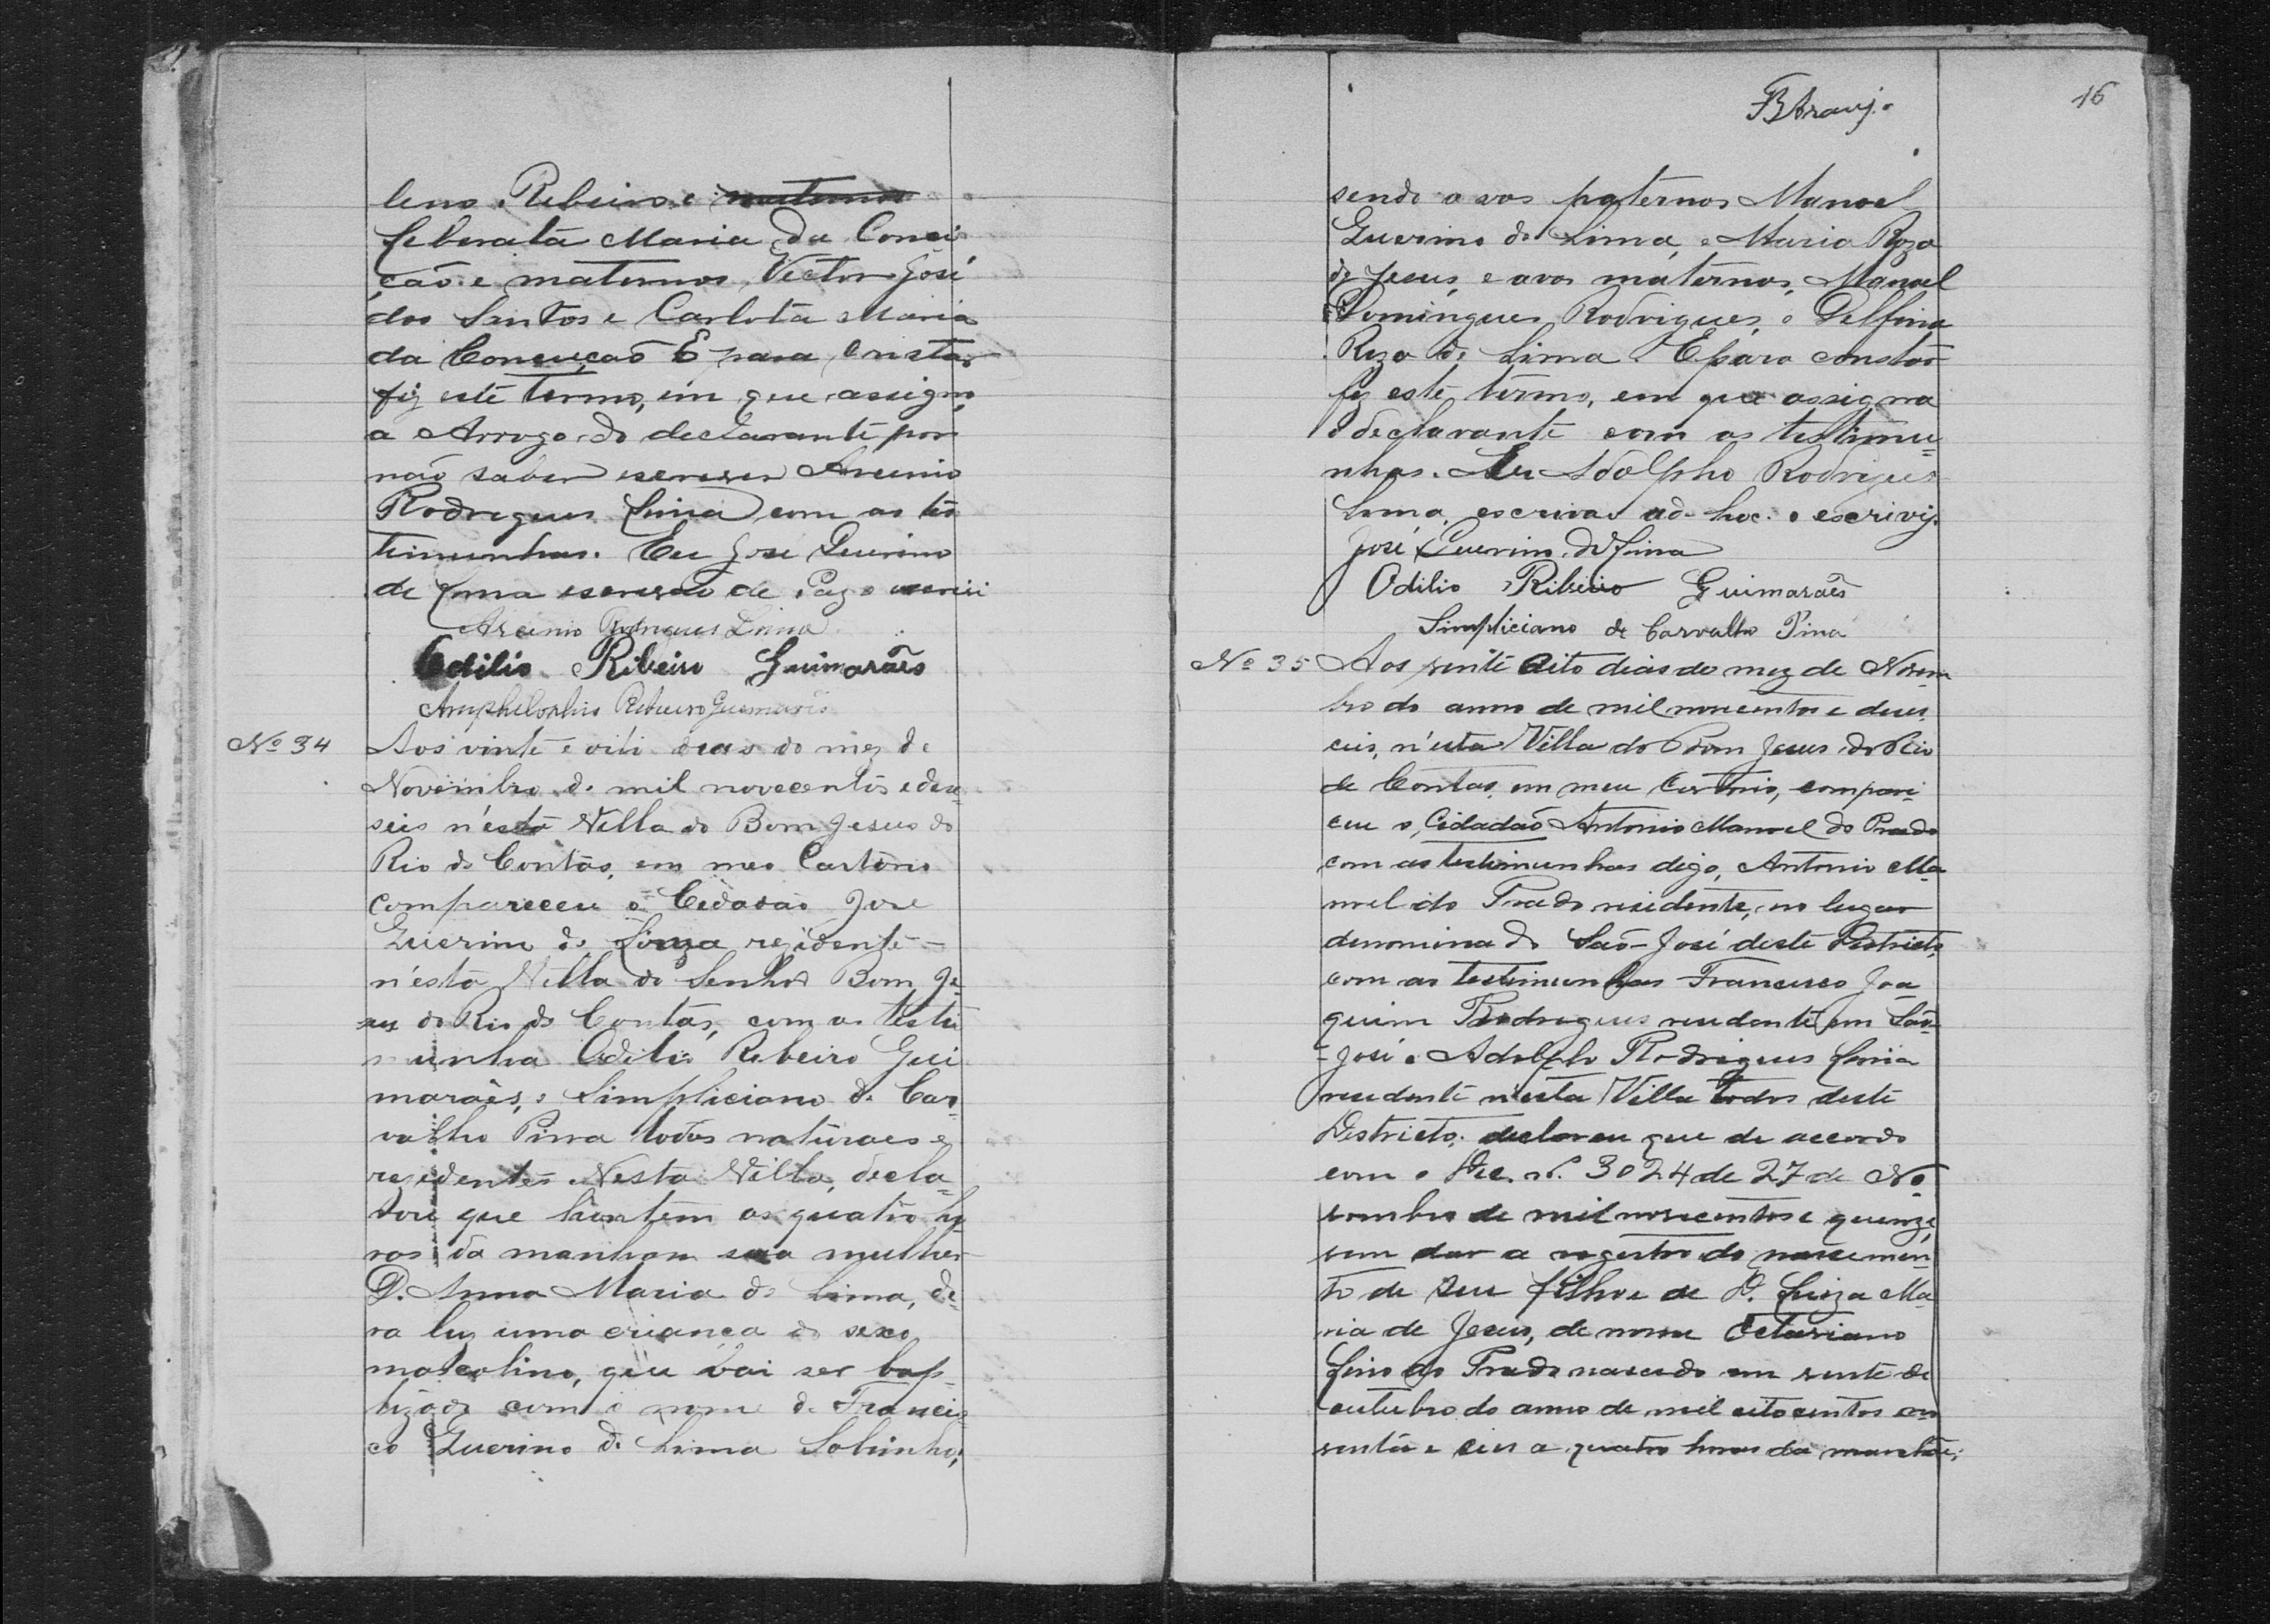 leno Ribeiro e maternos
Leberata Maria da Concei
ção e maternos, Victor José
dos Santos e Carlota Maria
da Conceição E para Constar
fiz este termo, em que assigno
a Arrogo do declarante por
não saber escrever Arcenio
Rodrigues Lima com as tes
timunhas. Eu José Guerino
de Lima escrivão de Paz o escrivi
Arcenio Rodrigues Lima
Odilio Ribeiro Guimarães
Amphilophio Ribeiro Guimarães
Nº 34 Aos vinte e oito dias do mez de
Novembro de mil novecentos e deze
seis n'esta Villa do Bom Jesus do
Rio de Contas, em meo Cartorio
compareceu o Cidadão José
Guerino de Lima rezidente
n'esta Villa do Senhor Bom Je-
sus do Rio de Contas, com as testi
munha Odilio Ribeiro Gui
marães, e Simpliciano de Car-
valho Pina todos naturaes e
rezidentes Nesta Villa, decla-
rou que hontem as quatro ho-
ras da manham sua mulher
D. Anna Maria de Lima, de-
ra luz uma criança do sexo
mascolino, que vai ser bap-
tizado com o nome de Francis-
co Guerino de Lima Sobrinho,
BAraujo
16
sendo avos paternos Manoel
Guerino de Lima, e Maria Roza
de Jesus, e avos maternos, Manoel
Domingues Rodrigues, e Delfina
Roza de Lima. E para constar
fiz este termo, em que assigna
o declarante com as testimu-
nhas. Eu Adolpho Rodrigues
Lima, escrivão ad-hoc. o escrivij.
José Guerino de Lima
Odilio Ribeiro Guimarães
Simpliciano de Carvalho Pina
Nº 35 Aos vinte oito dias do mez de Novem
bro do anno de mil novecentos e deses
ceis, n'esta Villa do Bom Jesus do Rio
de Contas, em meu Cartorio, compare
ceu o, Cidadão Antonio Manoel do Prado
com as testimunhas digo, Antonio Ma
noel do Prado residente, no lugar
denominado São-José deste Districto,
com as testimunhas Francisco Joa-
quim Rodrigues residente em São-
-José e Adolpho Rodrigues Lima
residente n'esta Villa todos deste
Districto; declarou que de accordo
com o Dec. nº. 3024 de 27 de No
vembro de mil novecentos e quenze,
vem dar a regestro do nascemen
to de seu filho e de D. Luiza Ma
ria de Jesus, de nome Octaviano
Lino do Prado nascedo em vente de
outubro do anno de mil oitocentos no
venta e ceis a quatro horas da manhãe;